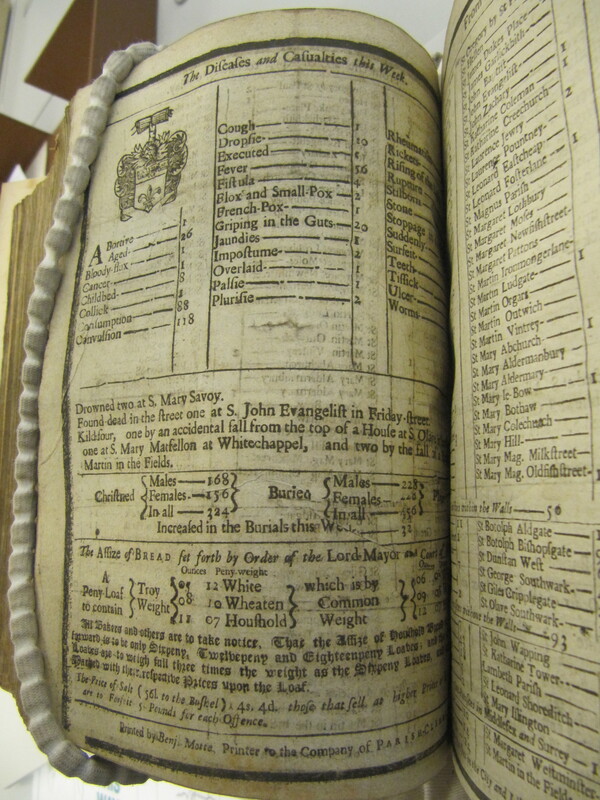 The Diseases and Casualties this Week.
Abortive 1
Aged 26
Bloody flux 1
Cancer 1
Childbed 8
Collick 1
Consumption 88
Convulsion 118
Cough 1
Dropsie 10
Executed
Fever 56
Fistula 4
Flox and Small-Pox 2
French-Pox 1
Griping in the Guts 20
Jaundies 1
Impostume 2
Overlaid 1
Palsie 1
Plurisie 2
Rickets
Rising of the
Rupture
Stilborn
Stone
Stoppage
Suddenly
Surfeit
Teeth
Tissick
Ulcer
Worms
Drowned two at S. Mary Savoy.
Found dead in the street one at S. John Evangelist in Friday-street.
Kild four, one by an accidental fall from the top of a House at S.
one at S. Mary Matfellon at Whitechappel, and two by the fall of a
Martin in the Fields.
Christned Males 168 Females 156 In all 324
Buried Males 228 Females 228 In all 456
Increased in the Burials this Week 32
The Assize of BREAD set forth by Order of the Lord-Mayor and Court of
Ounces Peny-weight
A Peny-Loaf to contain Troy Weight
12 White
08 10 Wheaten
11 07 Houshold
which is by Common Weight
06
09
12
All Bakers and others are to take notice, That the Assize of Houshold
forward is to be only Sixpeny, Twelvepeny and Eighteenpeny Loaves; and
Loaves are to weigh full three times the weight as the Sixpeny Loaves,
Marked with their respective Prices upon the Loaf.
The Price of Salt (56 l. to the Bushel) 4s. 4d. those that sell at higher
are to Forfeit 5 Pounds for each Offence.
Printed by Benj. Motte, Printer to the Company of PARISH-
From
St Gregory by St
St James Dukes Place
St James Garlickhith
St John Baptist
St John Evangelist 1
St John Zachary
St Katharine Coleman
St Katharine Creechurch 2
St Laurence Jewry
St Laurence Pountney
St Leonard Eastcheap 1
St Leonard Fosterlane
St Magnus Parish
St Margaret Lothbury
St Margaret Moses
St Margaret Newfishstreet
St Margaret Pattons
St Martin Ironmongerlane
St Martin Ludgate 1
St Martin Orgars
St Martin Outwich
St Martin Vintrey 1
St Mary Abchurch
St Mary Aldermanbury
St Mary Aldermary 1
St Mary le Bow
St Mary Bothaw
St Mary Colechurch
St Mary Hill
St Mary Mag. Milkstreet
St Mary Mag. Oldfishstreet 1
within the Walls 50
St Botolph Aldgate
St Botolph Bishopsgate
St Dunstan West
St George Southwark
St Giles Cripplegate
St Olave Southwark
without the Walls 193
St John Wapping
St Katharine Tower
Lambeth Parish
St Leonard Shoreditch
St Mary Islington
in Middlesex and Surrey
St Margaret Westminster
St Martin in the Fields
the City and